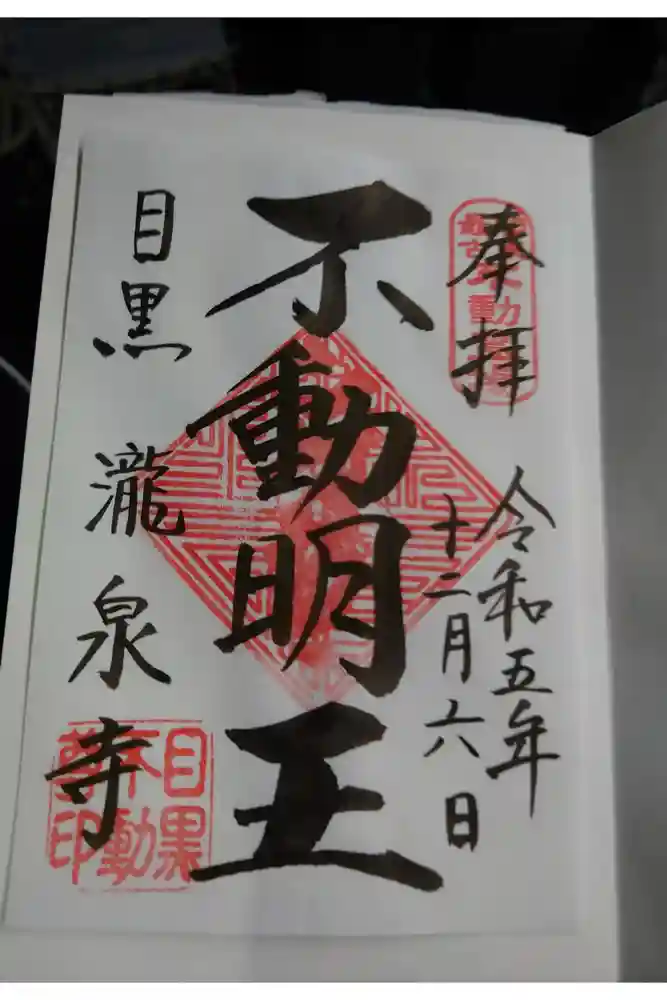 奉拝
令和五年
十二月六日
不動明王
目黒 瀧泉寺
目黒
不動
尊印